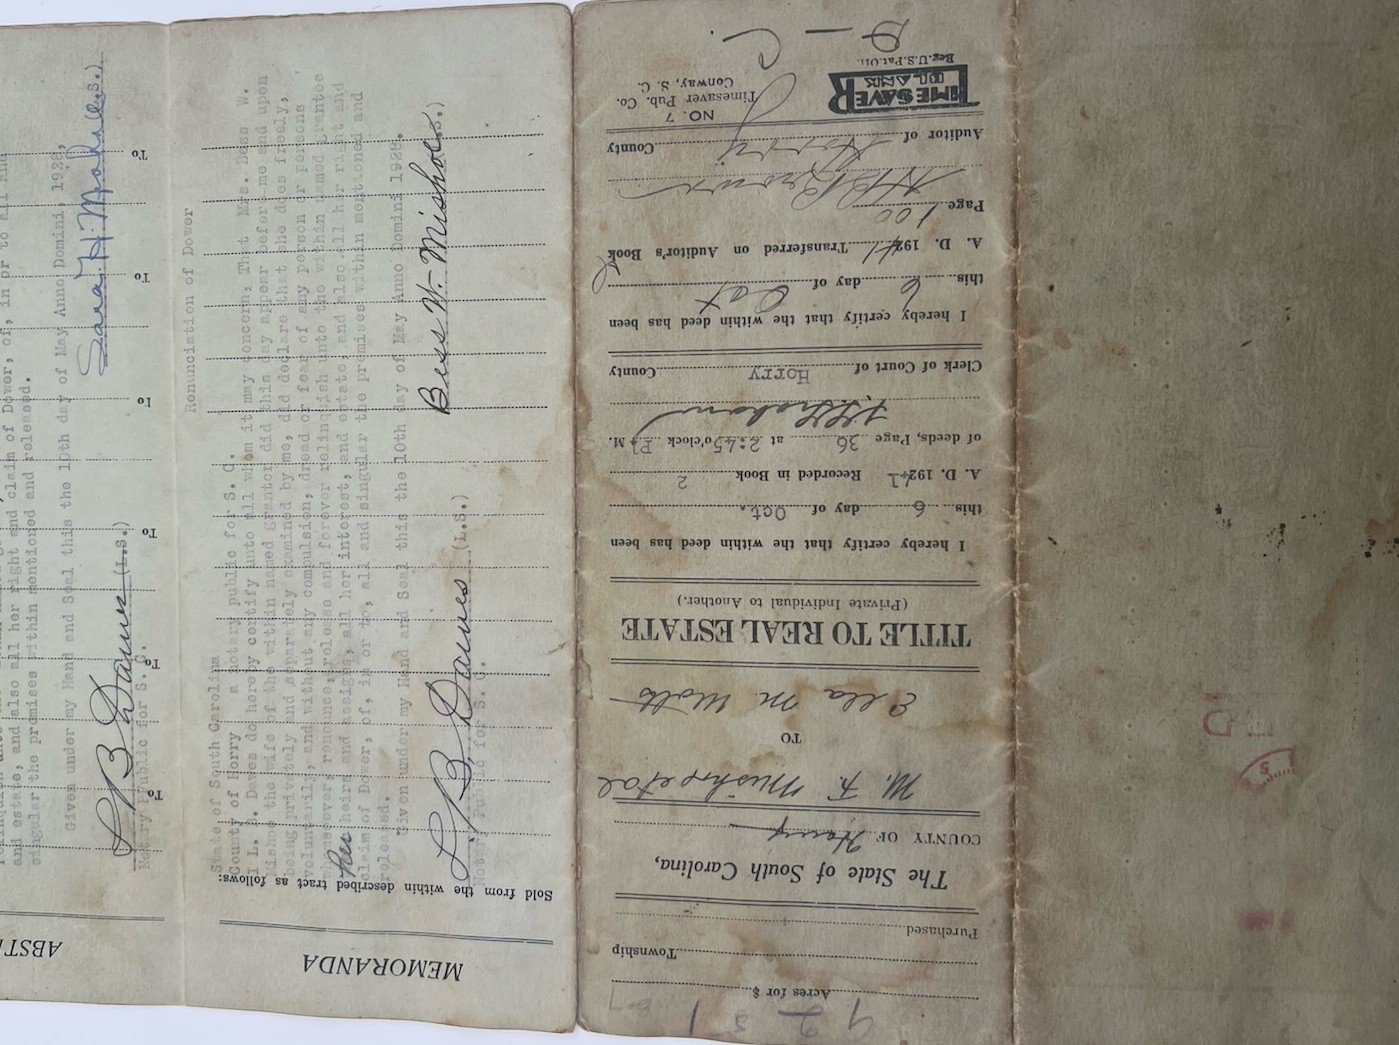 and estate, and also all her right and claim of Dower, of, in or to all and
singular the premises within mentioned and released.
Given under my Hand and Seal this the 10th day of May Anno Domini, 1928,
Sara H. Mishoe (L.S.)
L B Dawes (L.S.)
Notary Public for S. C.
To
To
To
To
To
To
ABST
Renunciation of Dower
State of South Carolina
County of Horry a notary public for S. C.
I L. B. Dawes do hereby certify unto all whom it may concern, That Mrs. Bess W.
Mishoe the wife of the within named grantor did this day appear before me and upon
being privately and separately examined by me, did declare that she does freely,
voluntarily, and without any compulsion, dread or fear of any person or persons
whomsoever, renounce, release and forever relinquish unto the within named grantee
her heirs and assigns, all her interest, and estate, and also all her right and
claim of Dower, of, in or to, all and singular the premises within mentioned and
released.
Given under my Hand and Seal this the 10th day of May Anno Domini 1928.
Bess W. Mishoe (L.S.)
L B Dawes (L.S.)
Notary Public for S. C.
MEMORANDA
Sold from the within described tract as follows:
Acres for $
Township
Purchased
The State of South Carolina,
COUNTY OF Horry
M. F. Mishoe et al
TO
Ella M Watts
TITLE TO REAL ESTATE
(Private Individual to Another.)
I hereby certify that the within deed has been
this 6 day of Oct.
A. D. 1941 Recorded in Book 2
of deeds, Page 36 at 2:45 o'clock P. M.
Clerk of Court of Horry County
I hereby certify that the within deed has been
this 6 day of Oct
A. D. 1941 Transferred on Auditor's Book
Page 100
Auditor of Horry County
NO. 7
Timesaver Pub. Co.
Conway, S. C.
TIMESAVER
BLANK
Reg. U.S. Pat. Off.